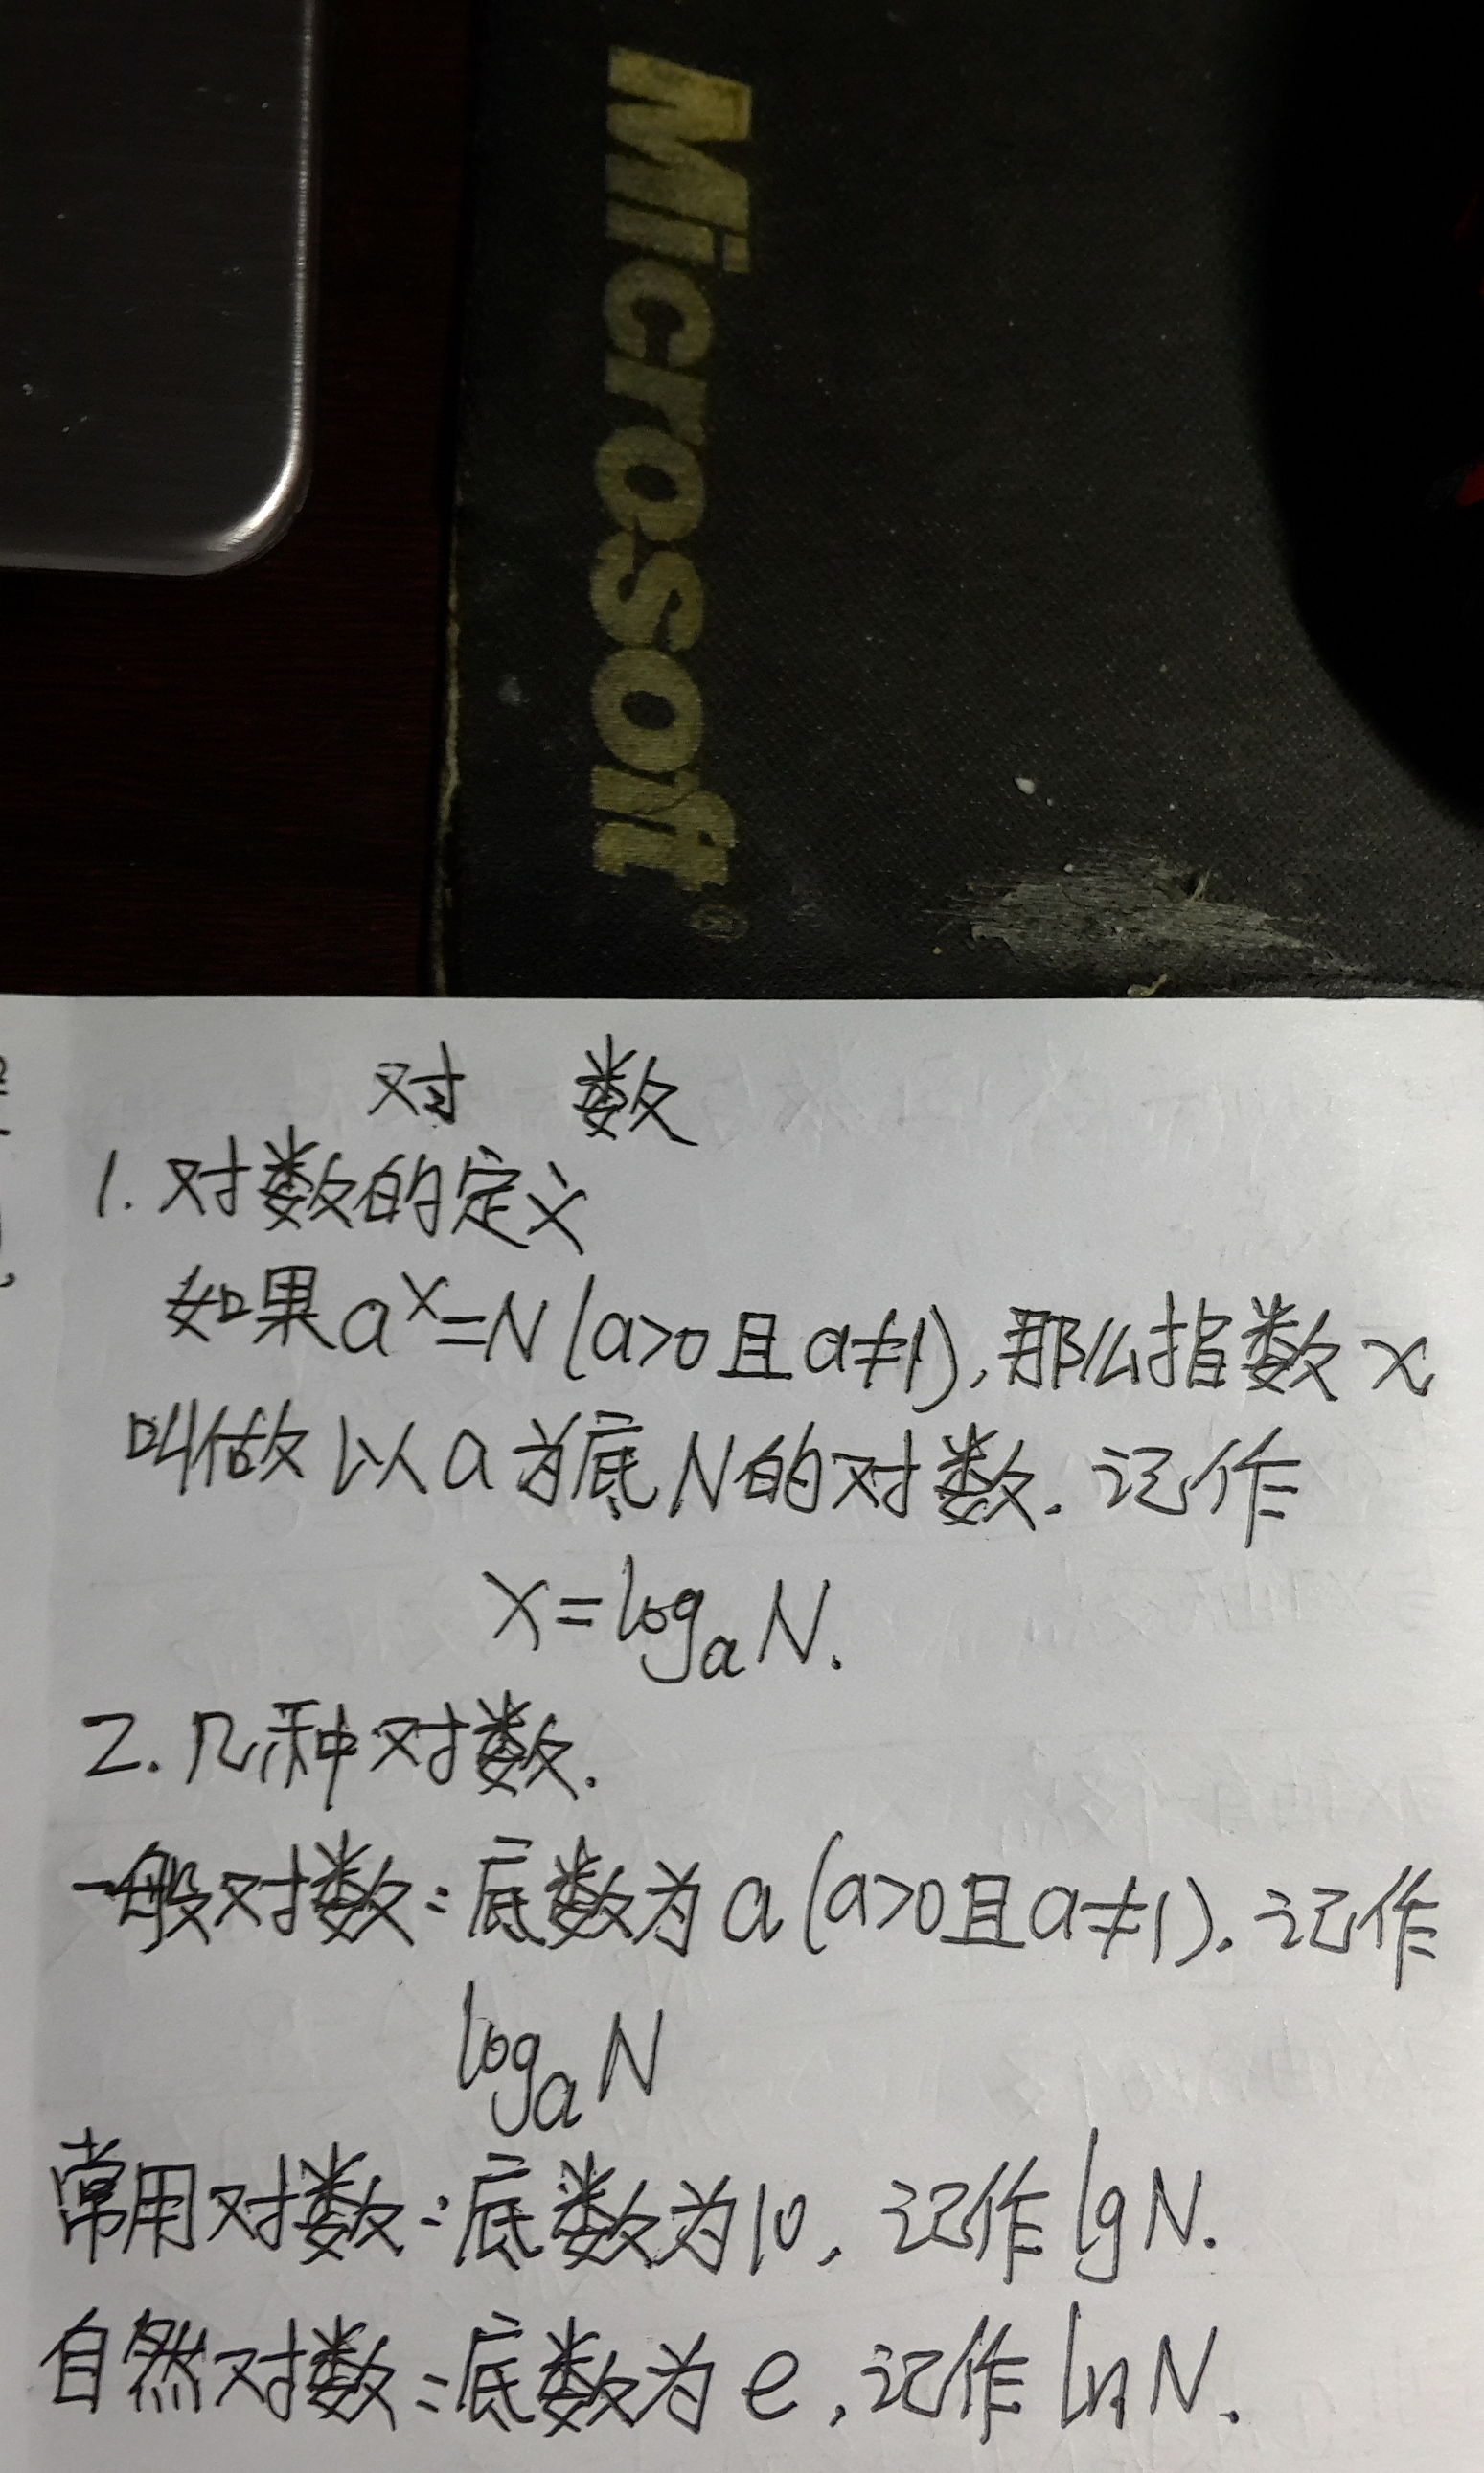 Microsoft®
对 数
1. 对数的定义
如果 a^x=N (a>0且a≠1), 那么指数 x
叫做以 a 为底 N 的对数. 记作
x=log_a N.
2. 几种对数.
一般对数: 底数为 a (a>0且a≠1). 记作
log_a N
常用对数: 底数为10, 记作 lg N.
自然对数: 底数为 e, 记作 ln N.